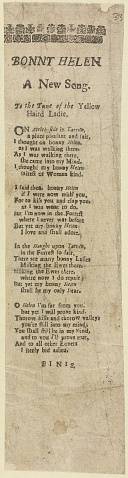 BONNY HELEN
A New Song.
To the Tune of the Yellow
Haird Ladie.
ON
a place pleasant and fair,
I thought on bonny Helen,
as I was walking there.
As I was walking there,
she came into my mind,
I thought my bonny
of Woman kind.
I said then bonny Helen
if I were now with you,
For to kiss you and clap you
as I was wont to do.
But I'm now in the Forrest
where I never was before
But yet my bonny Helen
I love and shall adore.
In the
in the Forrest so fair,
There are many bonny Lasses
the Ewes there.
the Ewes there,
where now I do
But yet my bonny
shall be my only Dear.
O Helen I'm far from you,
but yet I will prove kind.
Thorow hills and thorow valleys
you're still into my mind;
You shall still be in my mind,
and to you I'll prove true,
And to all other Lasses
I freely bid adieu.
FINIS.